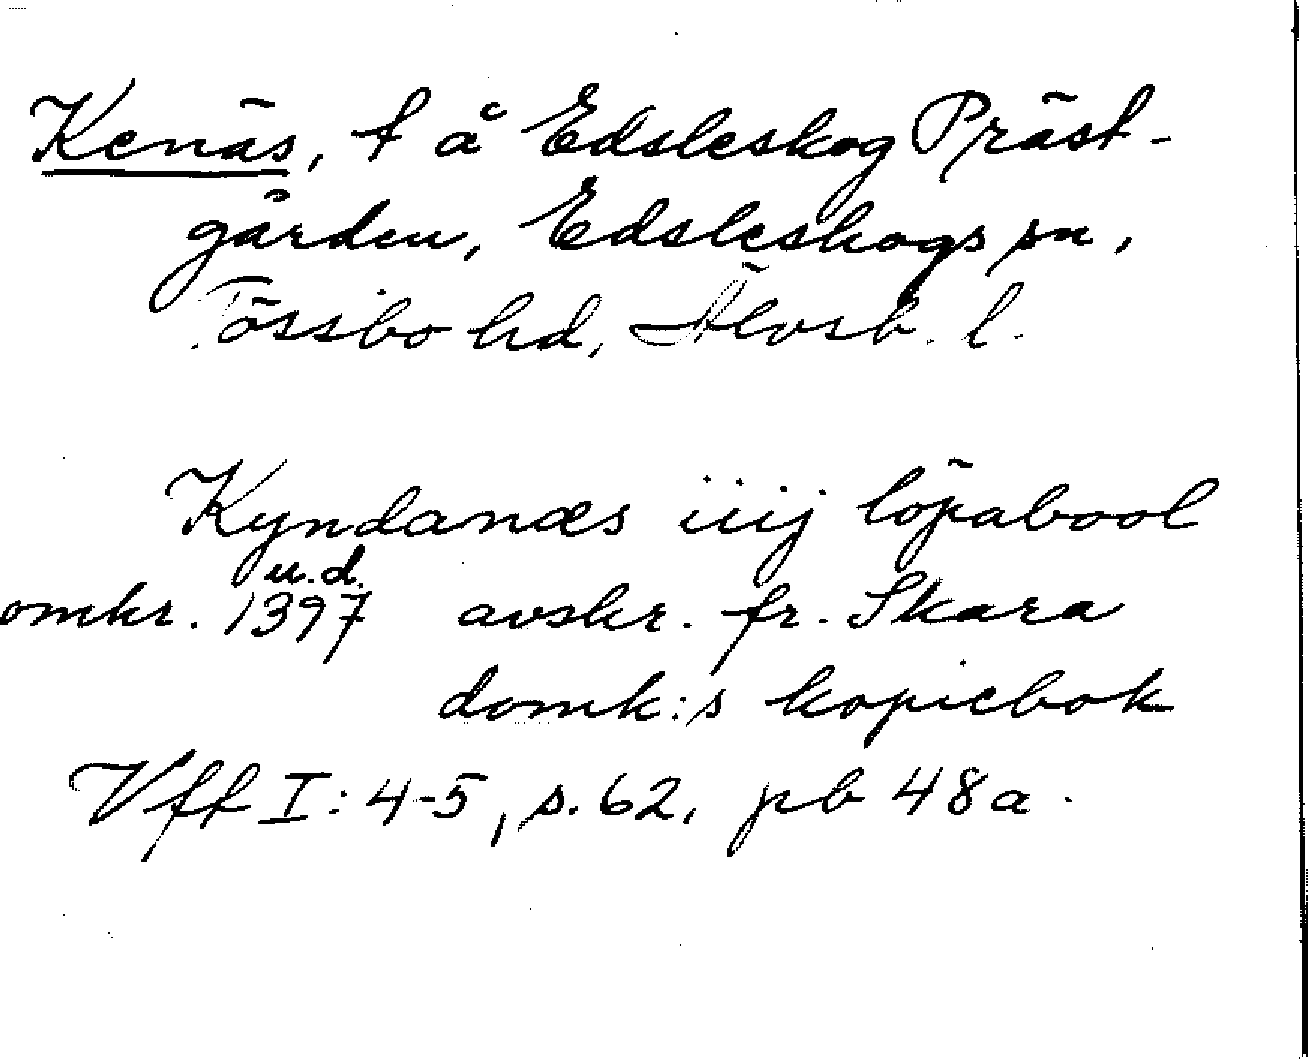 Kenäs, t å Edsleskog Präst-
gården, Edsleskogs sn,
Tössbo hd, Älvsb. l.
Kyndanæs iiij löpabool
u.d.
omkr. 1397 avskr. fr. Skara
domk:s kopiebok
Vff I: 4-5, s. 62, pb 48a.